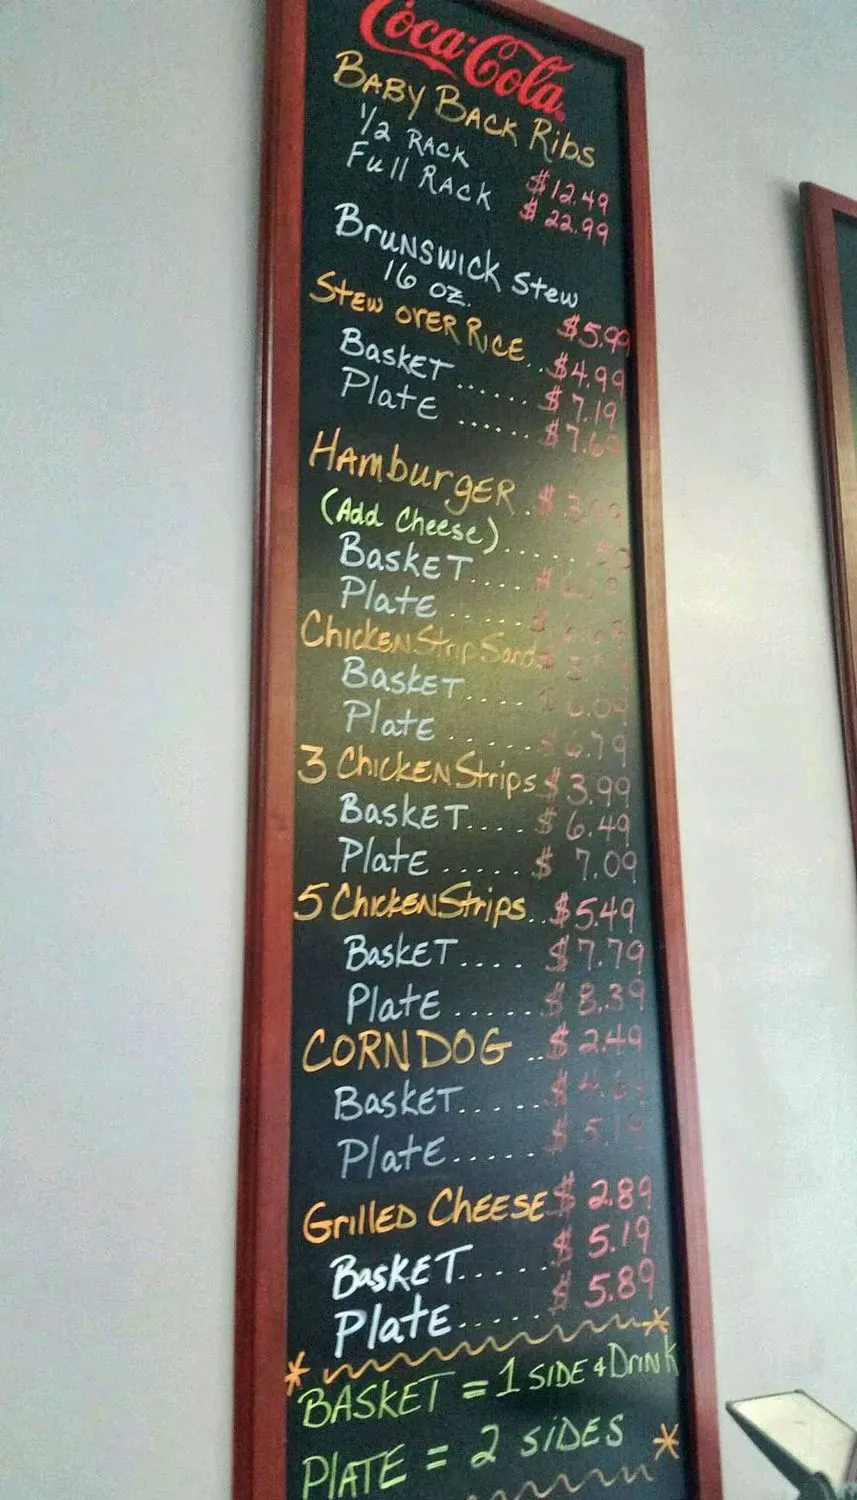 Coca-Cola
BABY BACK Ribs
1/2 RACK $12.49
Full RACK $22.99
BRUNSWICK Stew
16 oz. $5.99
Stew over Rice.. $4.99
BaskET ...... $7.19
PlatE ......
HamburgER.
(Add Cheese)......
BaskET....
PlatE ......
ChickEN Strip
BaskET.....
PlatE ...... $6.79
3 ChickEN Strips $3.99
BaskET..... $6.49
PlatE ...... $7.09
5 ChickEN Strips.. $5.49
BaskET..... $7.79
PlatE ...... $8.39
CORN DOG .. $2.49
BaskET.....
PlatE...... $5.19
GrillED CHEESE $2.89
BaskET..... $5.19
PlatE...... $5.89
BASKET = 1 SIDE & DrinK
PlATE = 2 SiDES